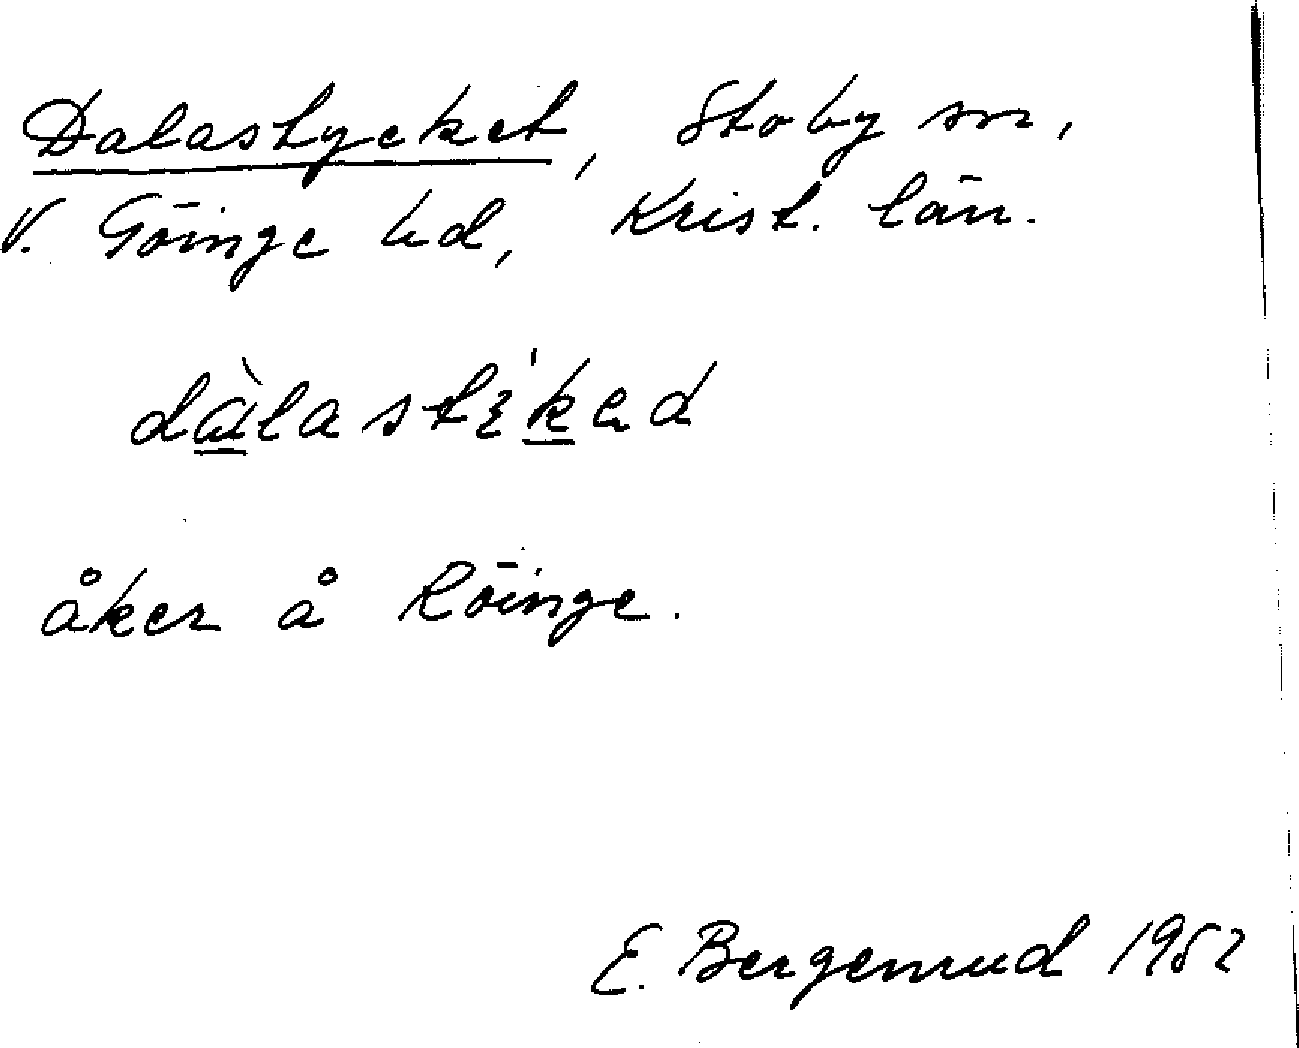 Dalastycket, Stoby sn,
V. Göinge hd, Krist. län.
dàlastikad
åker å Röinge.
E. Bergenrud 1952